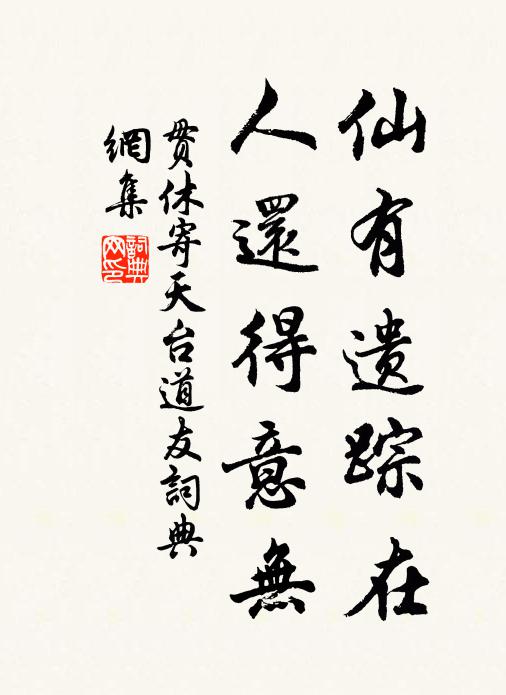 仙有遗踪在
人還得意無
贯休寄天台道友詞典
網集
詞典
网印